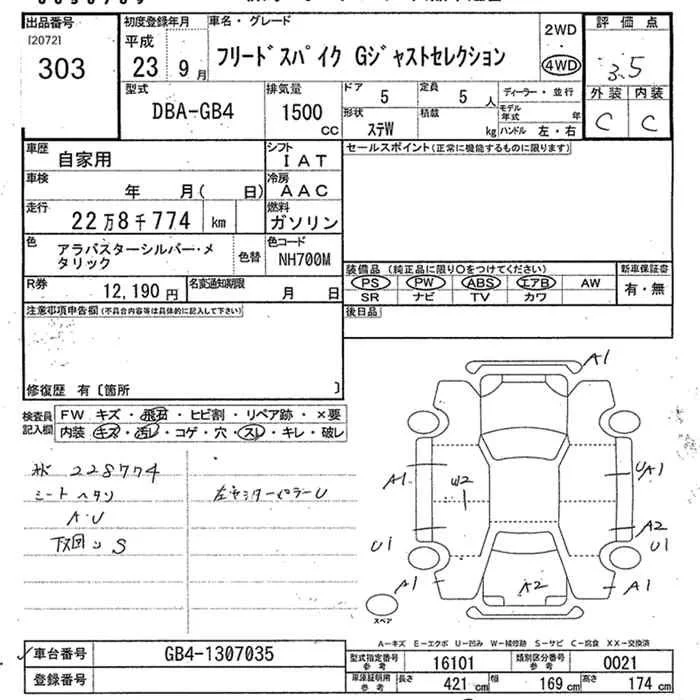 出品番号
120721
303
初度登録年月
平成
23 9月
車名・グレード
フリードスパイク Gジャストセレクション
2WD
・
4WD
評価点
3.5
外装 内装
C C
型式
DBA-GB4
排気量
1500
cc
ドア
5
定員
5人
形状
ステW
積載
kg
ディーラー・並行
モデル年式 年
ハンドル 左・右
車歴
自家用
シフト
IAT
車検
年 月( 日)
冷房
AAC
走行
22万8千774 km
燃料
ガソリン
色
アラバスターシルバー・メ
タリック
色替
色コード
NH700M
R券
12,190円
名変通知期限
月 日
セールスポイント(正常に機能するものに限ります)
装備品(純正品に限り〇をつけてください)
PS PW ABS エアB AW
SR ナビ TV カワ
新車保証書
有・無
後日品
注意事項申告欄(不具合内容等は具体的に記入して下さい)
修復歴 有〔箇所 〕
検査員
記入欄
FW キズ・飛石・ヒビ割・リペア跡・×要
内装 キズ・汚レ・コゲ・穴・スレ・キレ・破レ
228774
シートヘタリ
A・U
S
左センターピラーU
A1
A1
W2
UA1
A2
U1
U1
A1
A2
A1
スペア
A-キズ E-エクボ U-凹み W-補修跡 S-サビ C-腐食 XX-交換済
車台番号
GB4-1307035
登録番号
型式指定番号
参考
16101
類別区分番号
参考
0021
車庫証明用
参考
長さ
421 cm
幅
169 cm
高さ
174 cm